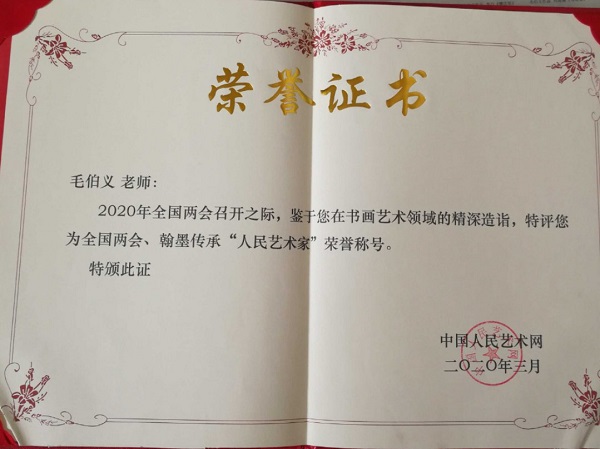 荣誉证书
毛伯义 老师：
2020年全国两会召开之际，鉴于您在书画艺术领域的精深造诣，特评您
为全国两会、翰墨传承“人民艺术家”荣誉称号。
特颁此证
中国人民艺术网
二〇二〇年三月